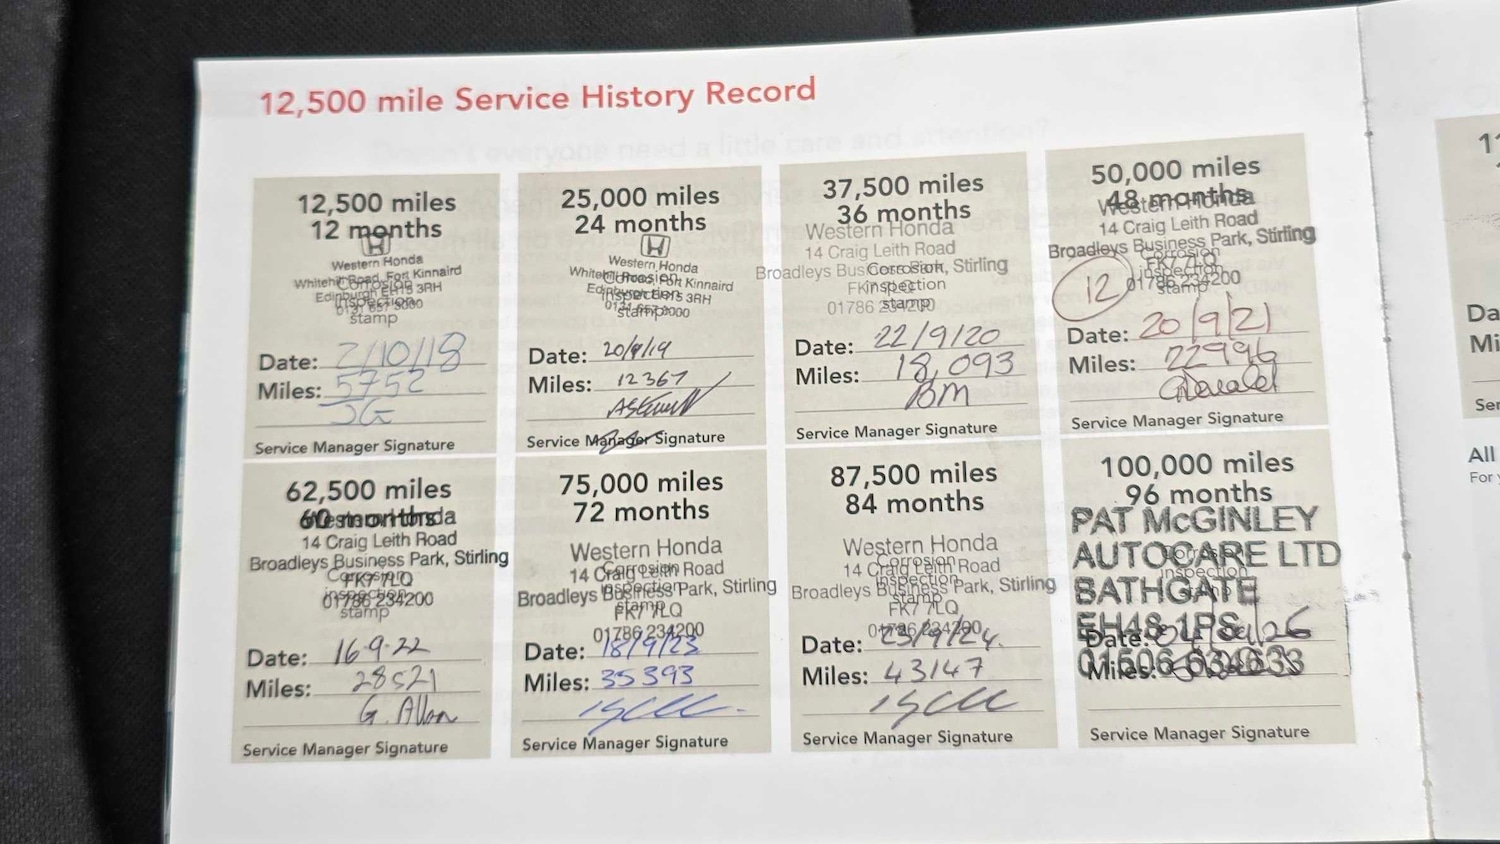 12,500 mile Service History Record
12,500 miles
12 months
Western Honda
Whitehill Road, Fort Kinnaird
Edinburgh EH15 3RH
Corrosion
inspection
stamp
Date: 2/10/18
Miles: 5752
JG
Service Manager Signature
25,000 miles
24 months
Western Honda
Whitehill Road, Fort Kinnaird
Edinburgh EH15 3RH
Corrosion
inspection
stamp
Date: 20/9/19
Miles: 12367
Service Manager Signature
37,500 miles
36 months
Western Honda
14 Craig Leith Road
Broadleys Business Park, Stirling
FK7 7LQ
01786 234200
Corrosion
inspection
stamp
Date: 22/9/20
Miles: 18,093
BM
Service Manager Signature
50,000 miles
48 months
Western Honda
14 Craig Leith Road
Broadleys Business Park, Stirling
FK7 7LQ
01786 234200
Corrosion
inspection
stamp
12
Date: 20/9/21
Miles: 22996
Service Manager Signature
62,500 miles
60 months
Western Honda
14 Craig Leith Road
Broadleys Business Park, Stirling
FK7 7LQ
01786 234200
Corrosion
inspection
stamp
Date: 16.9.22
Miles: 28521
G. Allan
Service Manager Signature
75,000 miles
72 months
Western Honda
14 Craig Leith Road
Broadleys Business Park, Stirling
FK7 7LQ
01786 234200
Corrosion
inspection
stamp
Date: 18/9/23
Miles: 35393
Service Manager Signature
87,500 miles
84 months
Western Honda
14 Craig Leith Road
Broadleys Business Park, Stirling
FK7 7LQ
01786 234200
Corrosion
inspection
stamp
Date: 23/9/24.
Miles: 43147
Service Manager Signature
100,000 miles
96 months
PAT McGINLEY
AUTOCARE LTD
BATHGATE
EH48 1PS
01506 634633
Corrosion
inspection
Date:
Miles:
Service Manager Signature
Da
Mi
Ser
All
For